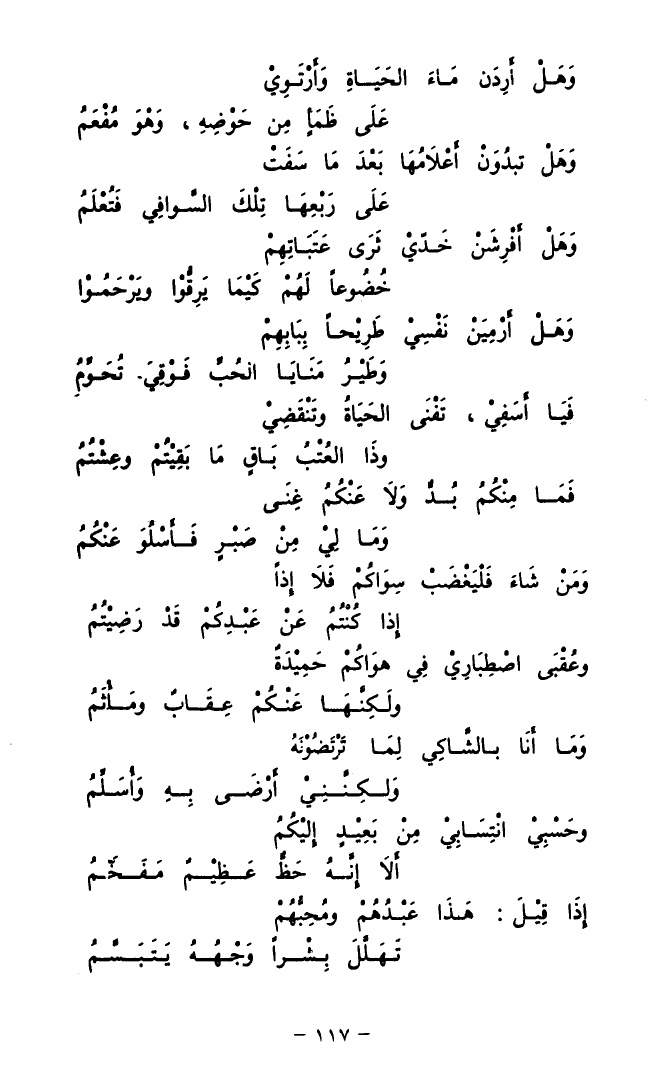 وَهَلْ أَرِدَن مَاءَ الحَيَاةِ وَأَرْتَوِيْ
عَلَى ظَمَأٍ مِن حَوْضِهِ ، وَهْوَ مُفْعَمُ
وَهَلْ تبدُوَنْ أَعْلَامُهَا بَعْدَ مَا سَفَتْ
عَلَى رَبْعِهَا تِلْكَ السَّوافِي فَتُعْلَمُ
وَهَلْ أَفْرِشَنْ خَدّيْ ثَرَى عَتَبَاتِهِمْ
خُضُوعاً لَهُمْ كَيْمَا يَرِقُّوْا ويَرْحَمُوْا
وَهَلْ أَرْمِيَنْ نَفْسِيْ طَرِيْحاً بِبَابِهِمْ
وَطَيْرُ مَنَايَا الحُبِّ فَوْقِيَ. تُحَوِّمُ
فَيَا أَسَفِيْ ، تَفْنَى الحَيَاةُ وتَنْقَضِيْ
وذَا العُتْبُ بَاقٍ مَا بَقِيْتُمْ وعِشْتُمُ
فَمَا مِنْكُمُ بُدٌّ وَلَا عَنْكُمُ غِنَى
وَمَا لِيْ مِنْ صَبْرٍ فَأَسْلُوَ عَنْكُمُ
وَمَنْ شَاءَ فَلْيَغْضَبْ سِوَاكُمْ فَلَا إِذاً
إِذا كُنْتُمُ عَنْ عَبْدِكُمْ قَدْ رَضِيْتُمُ
وعُقْبَى اصْطِبَارِيْ فِي هوَاكُمْ حَمِيْدَةٌ
ولَكِنَّهَا عَنْكُمْ عِقَابٌ ومَأْثَمُ
وَمَا أَنَا بالشَّاكِي لِمَا تَرْتَضُوْنَهُ
وَلكِنَّنِيْ أَرْضَى بِهِ وَأُسَلِّمُ
وحَسْبِيْ انْتِسَابِيْ مِنْ بَعِيْدٍ إِلَيْكُمُ
أَلَا إِنَّهُ حَظٌّ عَظِيْمٌ مَفَخَّمُ
إِذَا قِيْلَ : هَذَا عَبْدُهُمْ ومُحِبُّهُمْ
تَهَلَّلَ بِشْراً وَجْهُهُ يَتَبَسَّمُ
– ١١٧ –